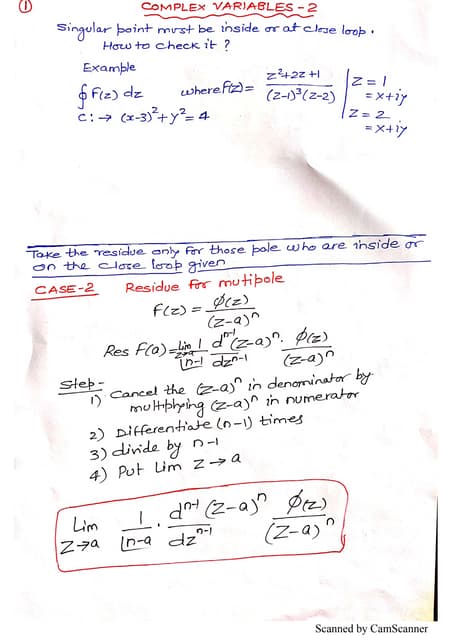 ①
COMPLEX VARIABLES - 2
Singular point must be inside or at close loop.
How to check it ?
Example
∮ F(z) dz where F(z) = z²+2z+1 / (z-1)³(z-2) | z = 1
= x+iy
C: → (x-3)²+y² = 4 | z = 2
= x+iy
Take the residue only for those pole who are inside or
on the close loop given
CASE-2 Residue for mutipole
F(z) = Ø(z) / (z-a)ⁿ
Res F(a) = Lim z→a 1/|n-1 dⁿ⁻¹/dzⁿ⁻¹ (z-a)ⁿ. Ø(z)/(z-a)ⁿ
Step -
1) Cancel the (z-a)ⁿ in denominator by
multiplying (z-a)ⁿ in numerator
2) Differentiate (n-1) times
3) divide by n-1
4) Put Lim z→a
Lim z→a 1/|n-a . dⁿ⁻¹/dzⁿ⁻¹ (z-a)ⁿ Ø(z)/(z-a)ⁿ
Scanned by CamScanner